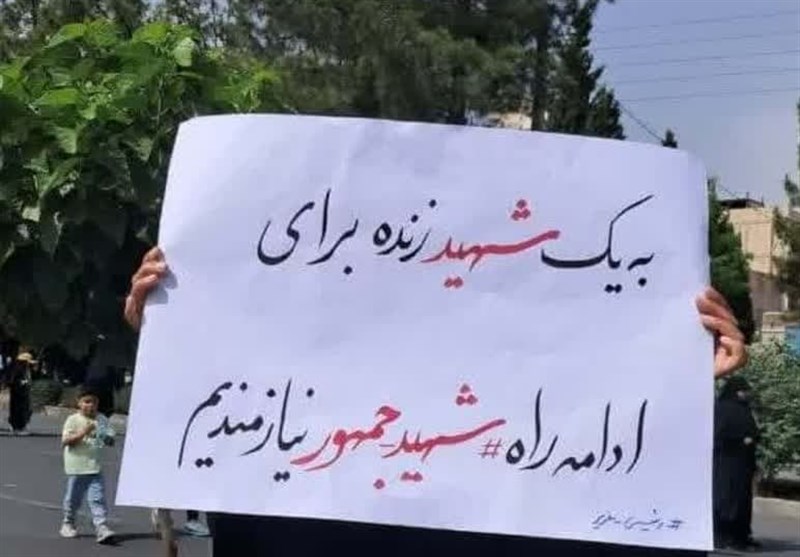 به یک شهید زنده برای
ادامه راه #شهید_جمهور نیازمندیم